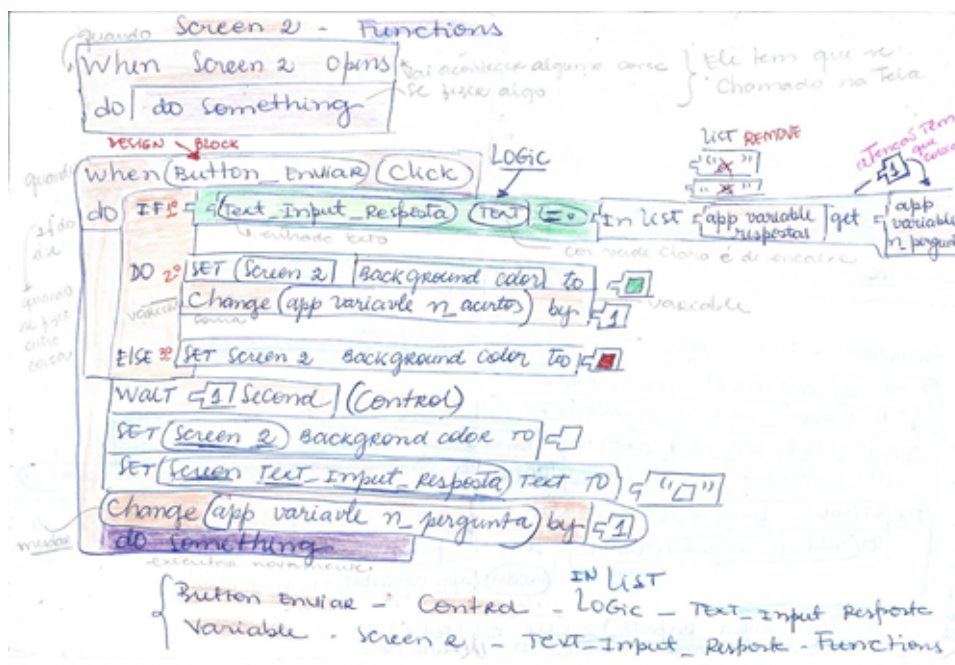 quando Screen 2 - Functions
When Screen 2 Opens
Vai acontecer alguma coisa
se fizer algo
Ele tem que se
Chamado na Tela
do do something
DESIGN BLOCK
LOGIC
LIST REMOVE
atenção Tem que
quando When (Button_Enviar) (Click)
do IF 1º (Text_Input_Resposta) (Text) = In List app variable respostas get app variable n pergunta
entrada texto
cor verde claro é de encaixe
DO 2º SET (Screen 2) Background color to
Change (app variavle n_acertos) by 1
variable
soma
ELSE 3º SET Screen 2 Background color to
WaIT 1 Second (Control)
SET (Screen 2) Backgrond color TO
SET (Screen Text_Input_Resposta) Text TO " "
Change (app variavle n_pergunta) by 1
mudar
do something
executra novamente.
IN LIST
Button Enviar - Control - LOGic - TEXT_Input Resposta
Variable - Screen 2 - TEXT_Input_Resposta - Functions